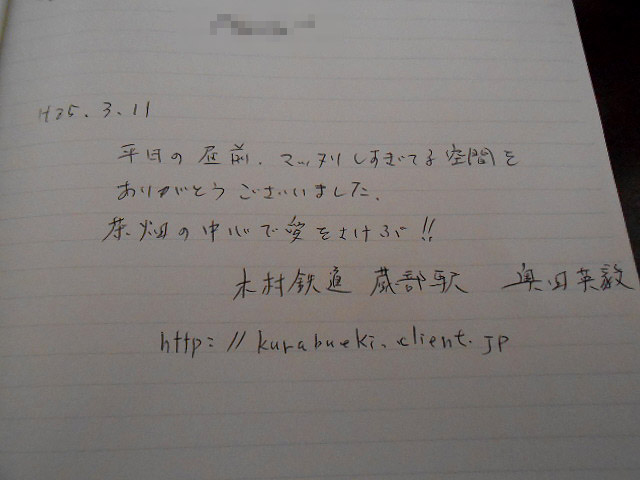 H25.3.11
平日の昼前、マッタリしすぎてる空間を
ありがとうございました。
茶畑の中心で愛をさけぶ!!
木村鉄道 蔵部駅 奥田英毅
http://kurabueki.client.jp